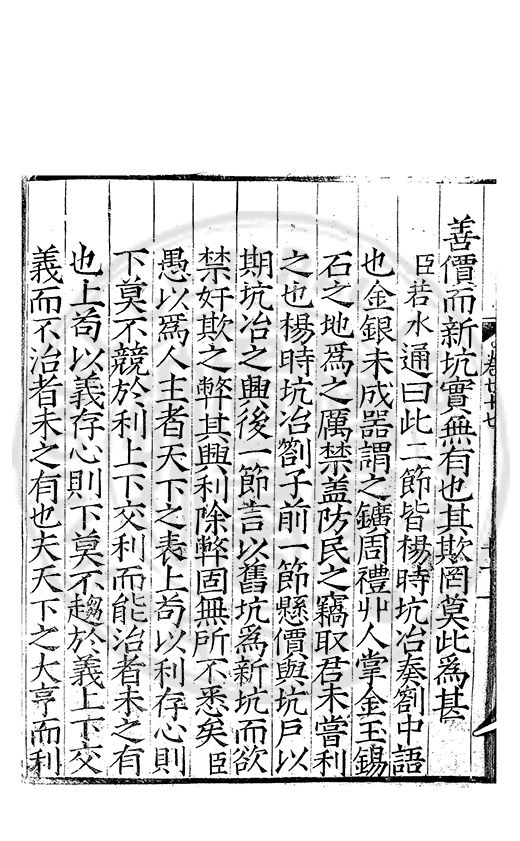 善價而新坑實無有也其欺罔莫此為甚
臣若水通曰此二節皆楊時坑冶奏劄中語
也金銀未成器謂之鑛周禮丱人掌金玉錫
石之地為之厲禁盖防民之竊取君未嘗利
之也楊時坑冶劄子前一節懸價與坑戶以
期坑冶之興後一節言以舊坑為新坑而欲
禁奸欺之弊其興利除弊固無所不悉矣臣
愚以為人主者天下之表上苟以利存心則
下莫不競於利上下交利而能治者未之有
也上苟以義存心則下莫不趨於義上下交
義而不治者未之有也夫天下之大亨而利